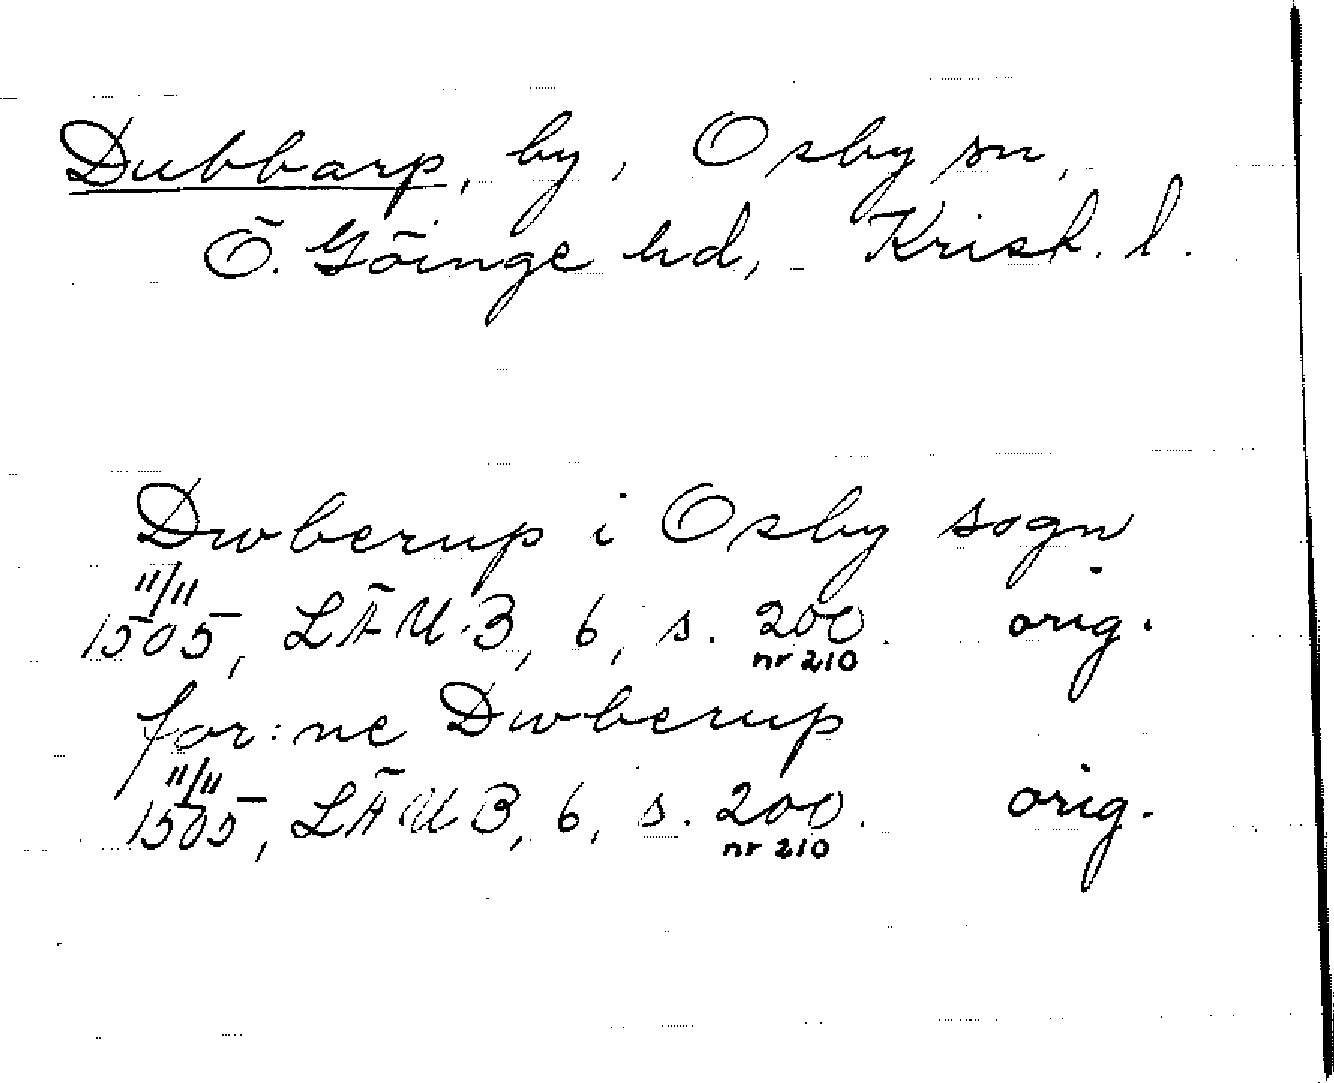 Dubbarp, by, Osby sn,
Ö. Göinge hd, Krist. l.
Dwberup i Osby sogn
11/11
1505, LÄUB, 6, s. 200. orig.
nr 210
for:ne Dwberup
11/11
1505, LÄUB, 6, s. 200. orig.
nr 210